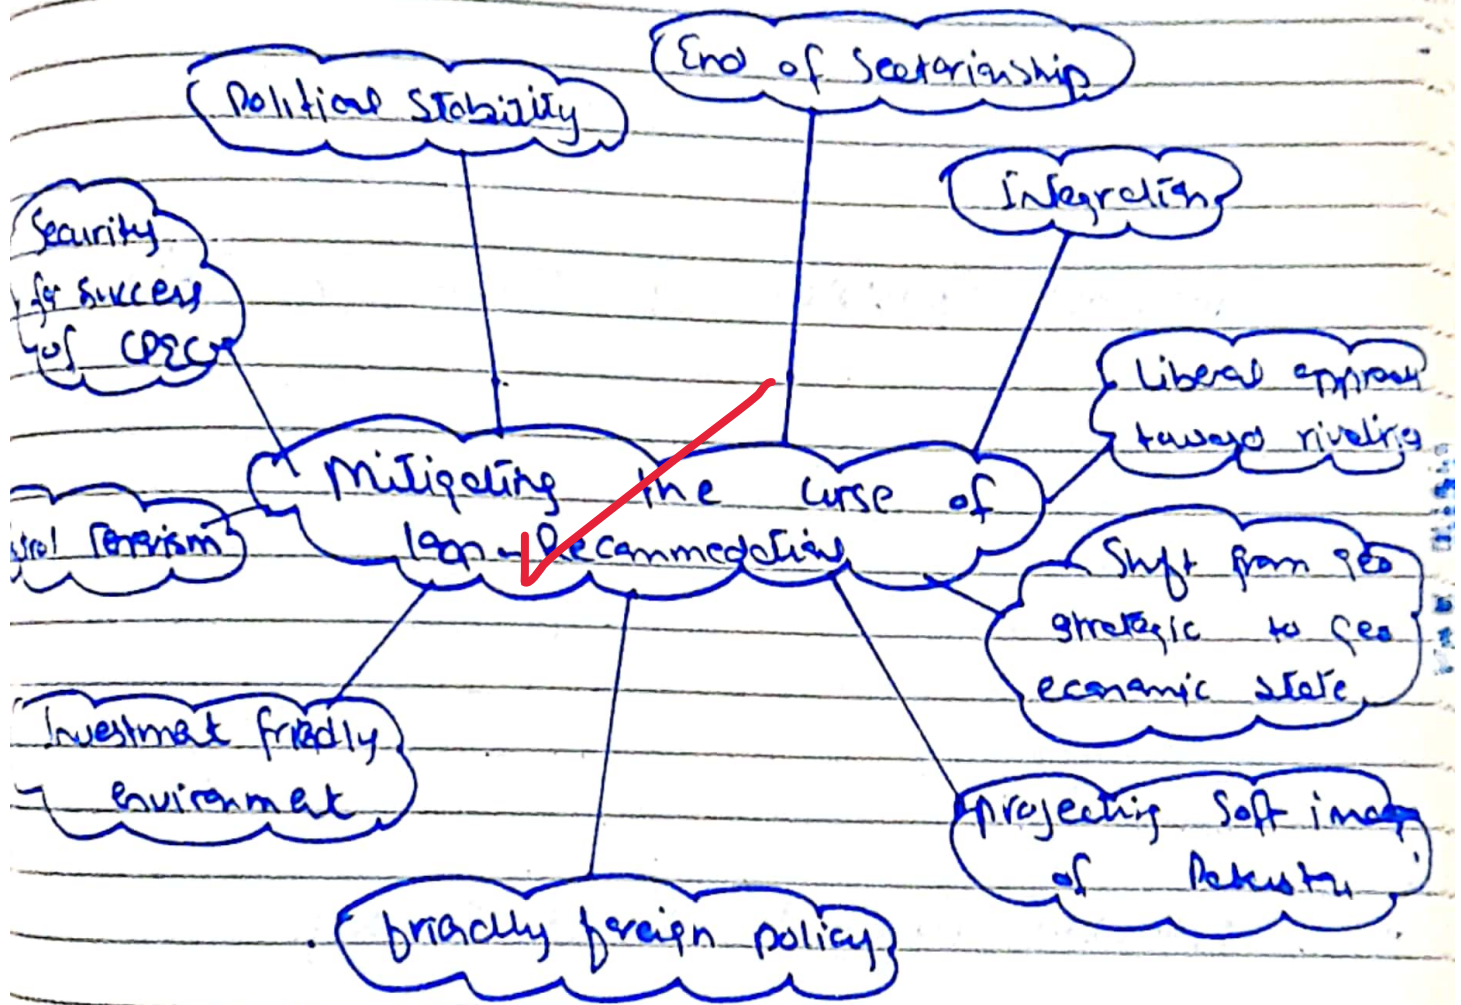 End of Sectarianship
Political Stability
Integration
Security
for success
of CPEC
Liberal
toward
Mitigating the curse of
loan - Recommedations
Terrorism
Shift from geo
strategic to geo
economic state
Investment friedly
environment
projecting soft image
of Pakistan
friendly foreign policy